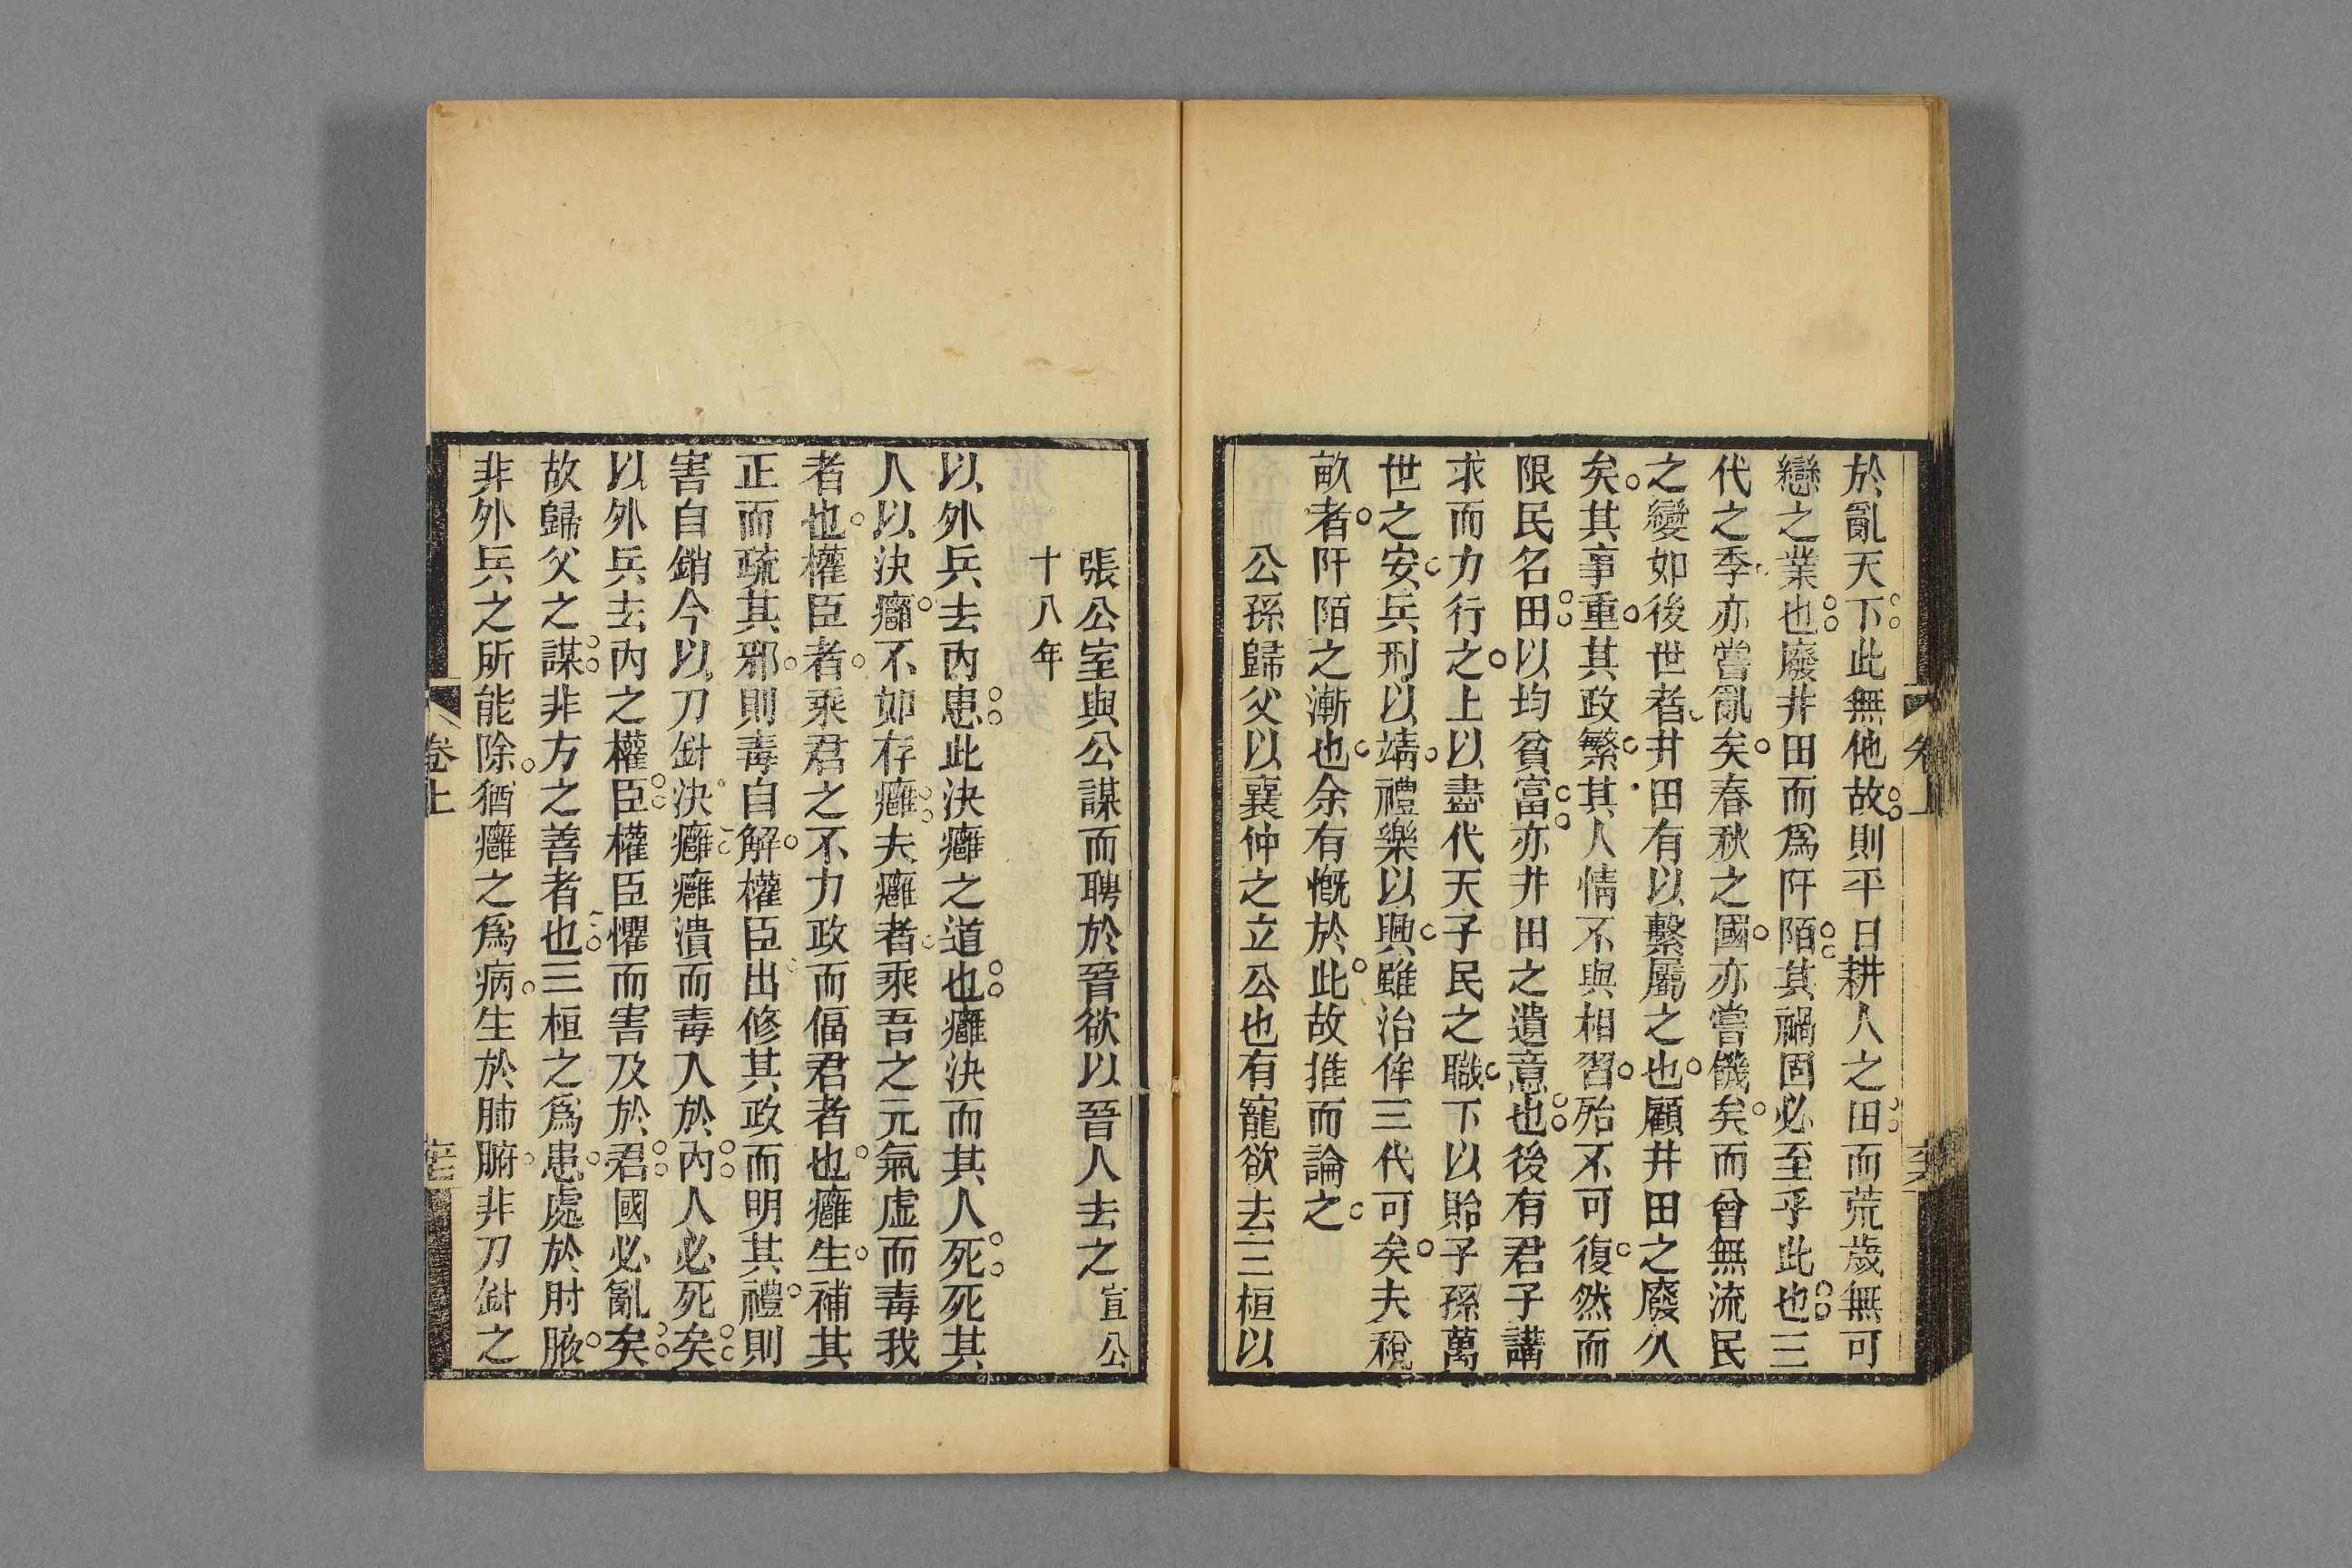 於亂天下此無他故則平日耕人之田而荒歲無可
戀之業也廢井田而爲阡陌其禍固必至乎此也三
代之季亦嘗亂矣春秋之國亦嘗饑矣而曾無流民
之變如後世者井田有以繫屬之也顧井田之廢久
矣其事重其政繁其人情不與相習殆不可復然而
限民名田以均貧富亦井田之遺意也後有君子講
求而力行之上以盡代天子民之職下以貽子孫萬
世之安兵刑以靖禮樂以興雖治侔三代可矣夫稅
畝者阡陌之漸也余有慨於此故推而論之
公孫歸父以襄仲之立公也有寵欲去三桓以
張公室與公謀而聘於晉欲以晉人去之宣公
十八年
以外兵去內患此決癰之道也癰決而其人死死其
人以決癰不如存癰夫癰者乘吾之元氣虛而毒我
者也權臣者乘君之不力政而偪君者也癰生補其
正而疏其邪則毒自解權臣出修其政而明其禮則
害自銷今以刀針決癰癰潰而毒入於內人必死矣
以外兵去內之權臣權臣懼而害及於君國必亂矣
故歸父之謀非方之善者也三桓之爲患處於肘腋
非外兵之所能除猶癰之爲病生於肺腑非刀針之
卷上